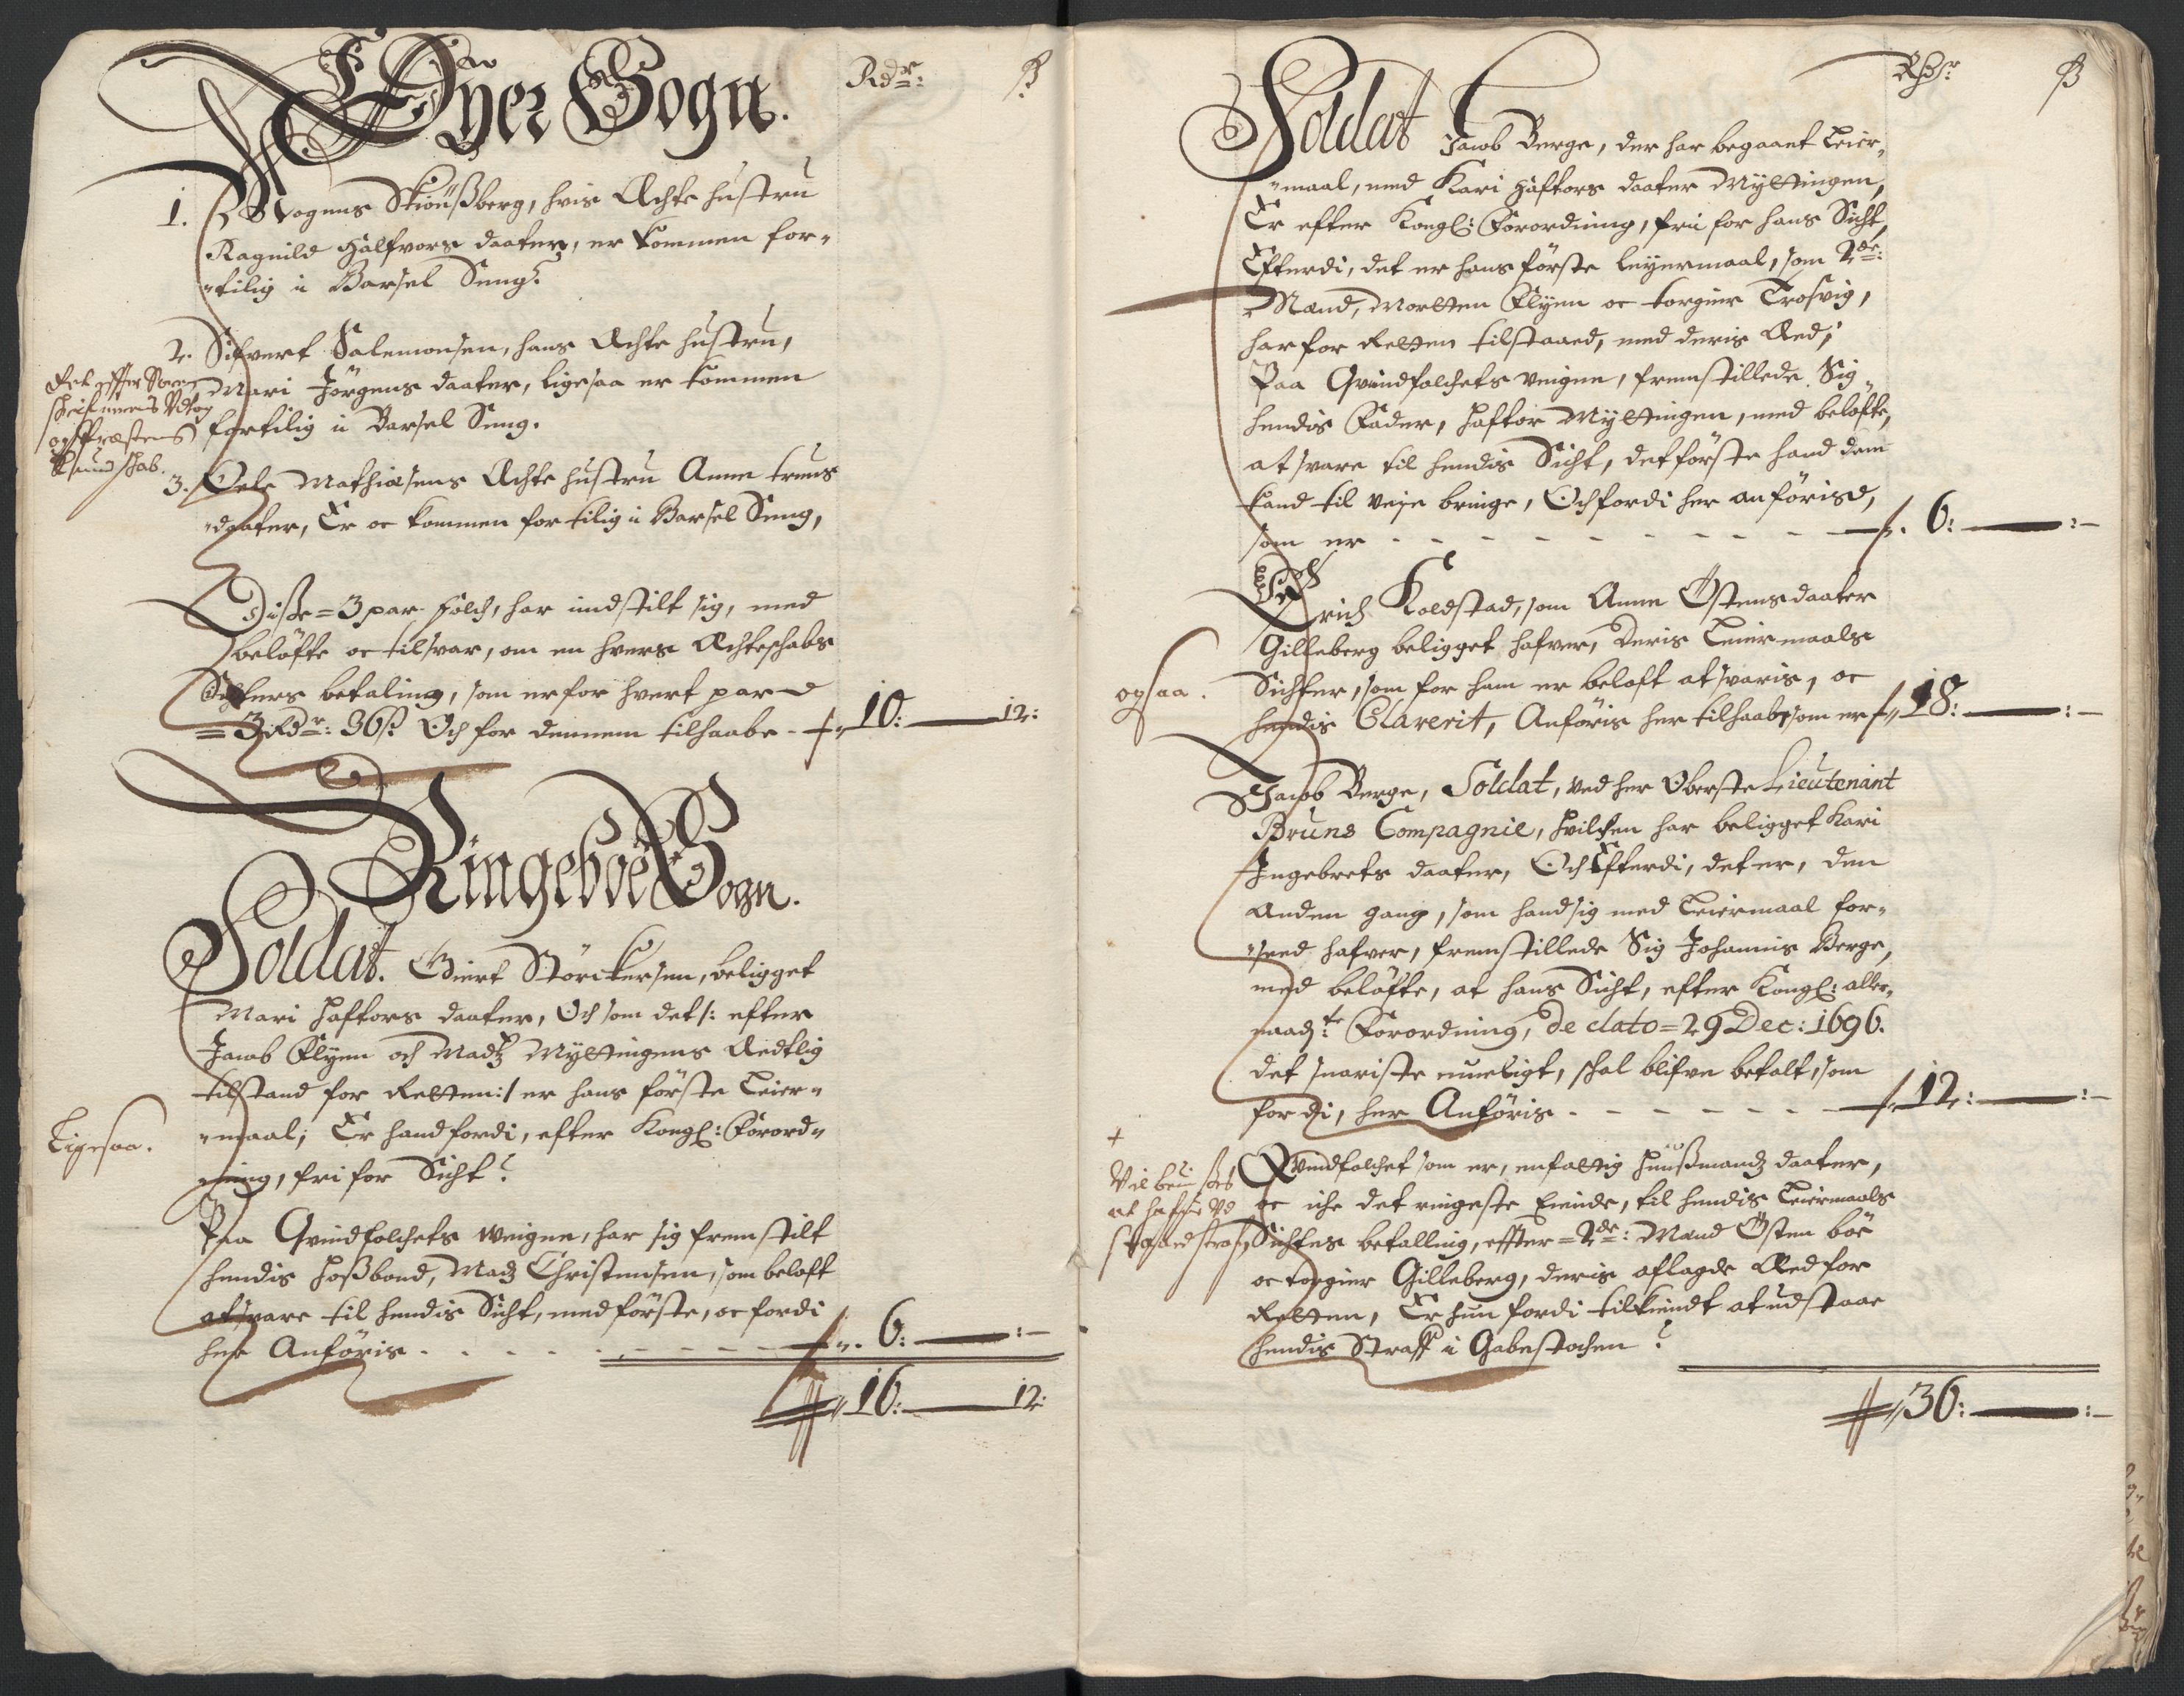 Øyer Sogn.
Rdr: ß
1. Mogens Skiøußberg, hvis Ächte hustru
Ragnild Halfvors daater, er kommen for-
"tilig i Barsel Seng.
2. Sifvert Salemonsen, hans Ächte hustru,
Mari Jörgens daater, ligesaa er kommen
fortilig i Barsel Seng.
3. Oele Mathiæsens Ächte hustru Anne
"daater, Er oc kommen for tilig i Barsel Seng,
Det effter Soren-
schrifuerens Vdtog
og Præstens
Kundschab.
Diße = 3 par Folch, har indstilt sig, med
beløfte oc tilsvar, om en hvers Ächteschabs
Sichters betaling, som er for hvert par
= 3 Rdr: 36 ß Och for dennem tilhaabe - 10: — 12:
Ringeboe Sogn.
Soldat. Giert Störckersen, beligget
Mari Haftors daater, Och som det /: efter
Jacob Flyen och Madtz Myttingens Aedtlig
tilstand for Retten :/ er hans förste Leier-
"maal; Er hand fordi, efter Kongl: Forord-
"ning, fri for Sicht.
Ligesaa.
Paa Qvindfolchets weigne, har sig fremstilt
hendis Hoßbond, Madz Christensen, som beloft
at svare til hendis Sicht, med förste, oc fordi
her Anföris - - - - - - - 6: — :—
16: — 12:
Rhdr ß
Soldat Jacob Berge, der har begaaet Leier-
"maal, med Kari Haftors daater Myttingen,
Er efter Kongl: Forordning, frii for hans Sicht,
Efterdi, det er hans förste leyermaal, som 2de:
Mænd, Morten Flyen oc torgier Trosvig,
har for Retten tilstaaed, med deris Aed;
Paa Qvindfolchets veigne, fremstillede Sig
hendis Fader, Haftor Myttingen, med beløfte,
at svare til hendis Sicht, det förste hand dem
kand til veje bringe, Och fordi her anförised,
som er - - - - - - - - - 6: — :—
Erich Koldstad, som Anne Östensdaater
Gilleberg beligget hafver, Deris Leiermaals
Sichter, som for ham er beloft at svaris, oc
hendis Clarerit, Anföris her tilhaabe, som er 18: — :—
ogsaa.
Jacob Berge, Soldat, ved her Oberste Lieutenant
Bruns Compagnie, hvilchen har beligget Kari
Ingebrets daater, Och Efterdi, det er, den
anden gang, som hand sig med Leiermaal for-
"seed hafver, fremstillede Sig Johannis Berge,
med beløfte, at hans Sicht, efter Kongl: aller-
naadte: Forordning, de dato = 29 Dec: 1696.
det snariste mueligt, schal blifve betalt, som
for di, her Anföris - - - - - - - 12: — :—
Qvindfolchet som er, en fattig Huußmandz daater,
oc iche det ringeste Eiende, til hendis Leiermaals
Sichtes betalling, effter = 2de: Mænd Östen böe
oc torgier Gilleberg, deris aflagde Aed for
Retten, Er hun fordi tilkiendt at udstaae
hendis Straff i Gabestochen.
+
Vil beuißes
at hafue Vd
staaed straf
36: — :—